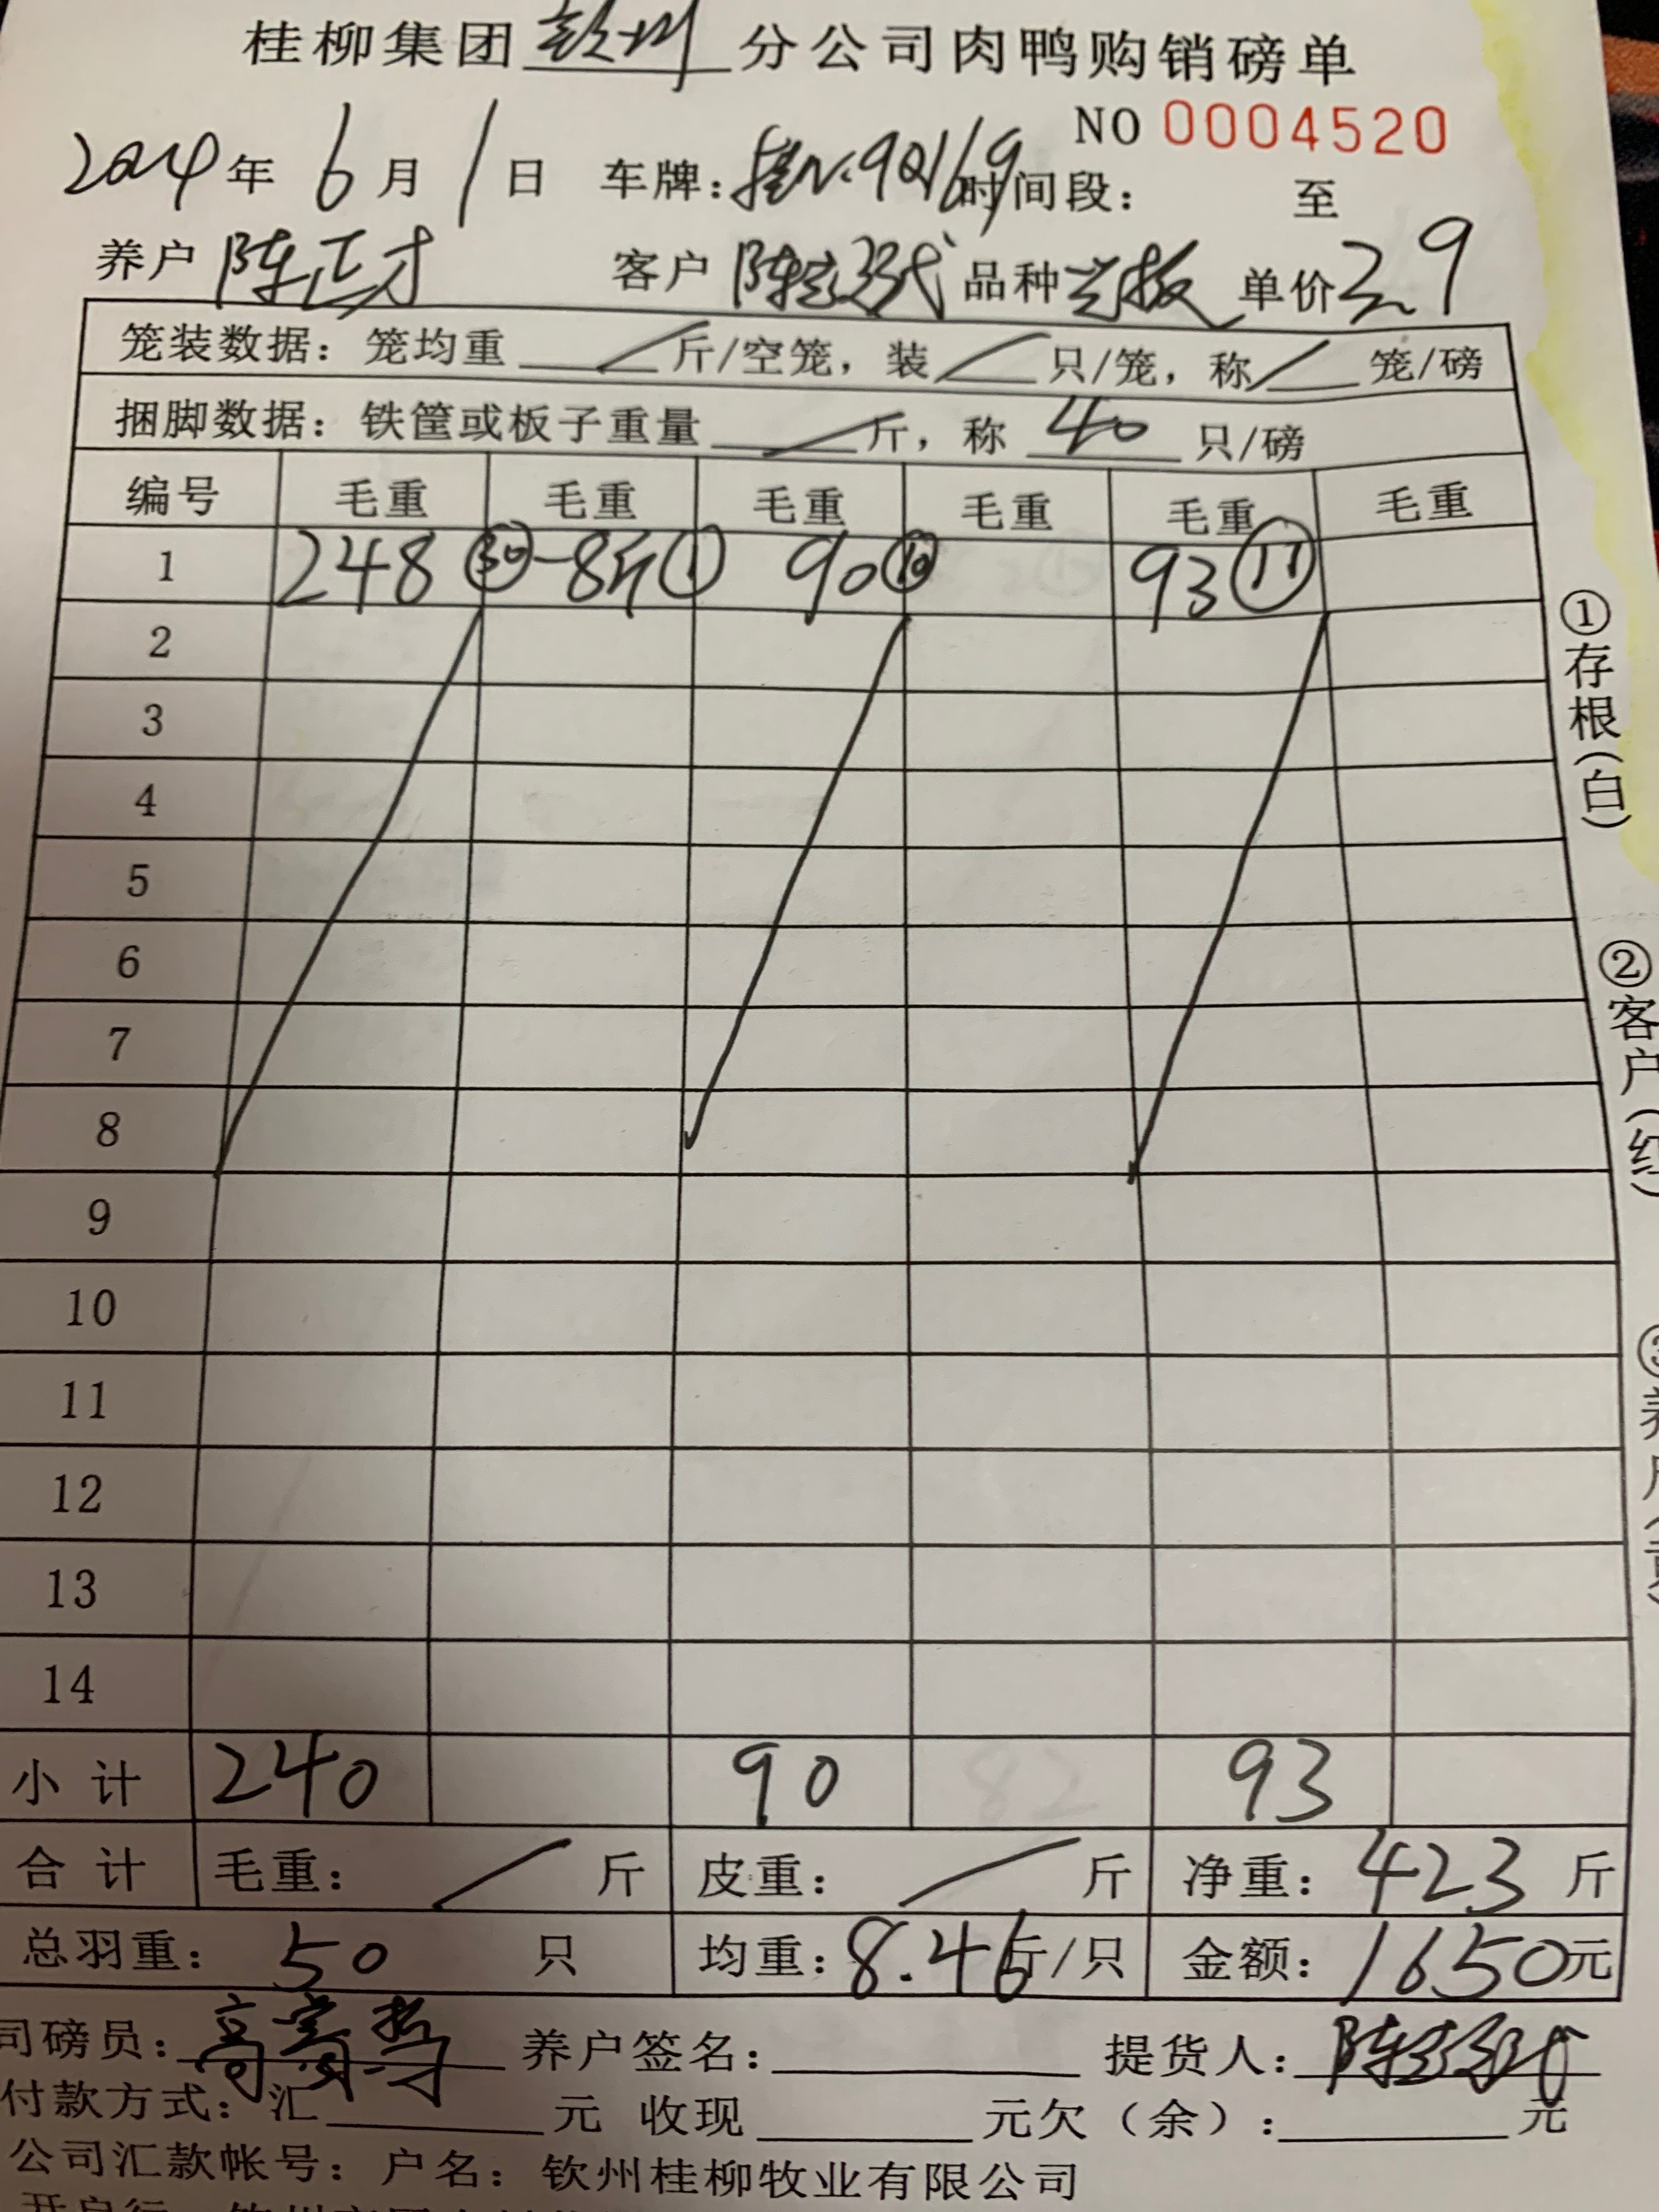 桂柳集团 钦州 分公司肉鸭购销磅单
NO 0004520
2024 年 6 月 1 日 车牌: 桂N·9Q169 时间段: 至
养户 陈正才 客户 陈 品种 单价 3.9
笼装数据: 笼均重 / 斤/空笼, 装 / 只/笼, 称 / 笼/磅
捆脚数据: 铁筐或板子重量 / 斤, 称 40 只/磅
编号 毛重 毛重 毛重 毛重 毛重 毛重
1 248 ㉚ -8斤 ① 90 ⑩ 93 ⑪
2
3
4
5
6
7
8
9
10
11
12
13
14
小计 240 90 82 93
合计 毛重: / 斤 皮重: / 斤 净重: 423 斤
总羽重: 50 只 均重: 8.46 斤/只 金额: 1650 元
司磅员: 高 养户签名: 提货人: 陈
付款方式: 汇 元 收现 元欠(余): 元
公司汇款帐号: 户名: 钦州桂柳牧业有限公司
①存根(白)
②客户(红)